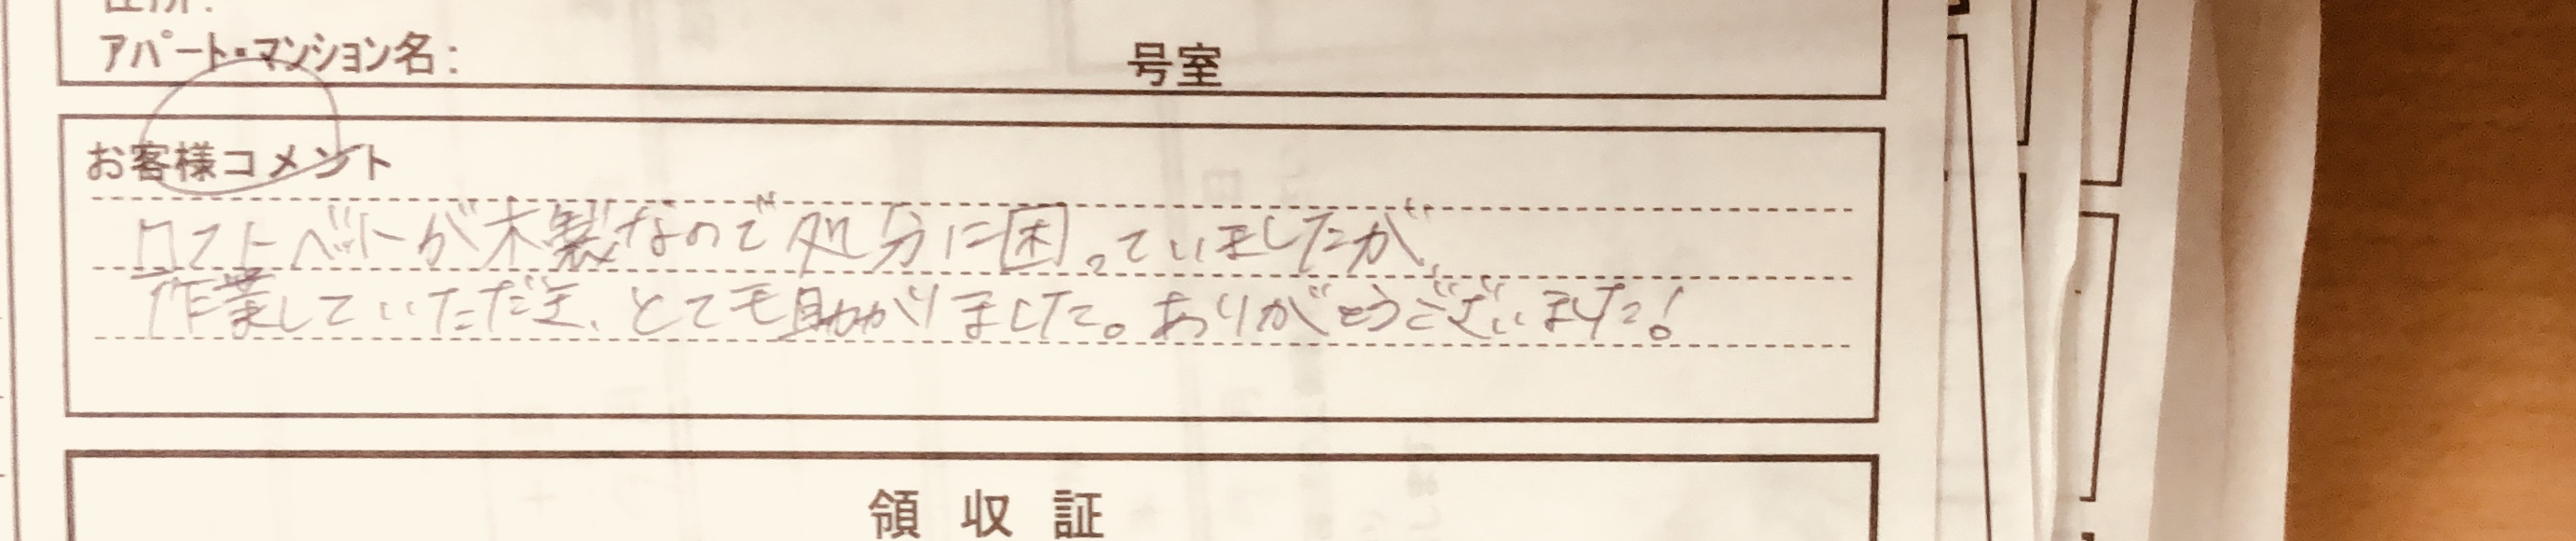 住所:
アパート・マンション名:
号室
お客様コメント
ロフトベットが木製なので処分に困っていましたが、
作業していただき、とても助かりました。ありがとうございました!
領収証